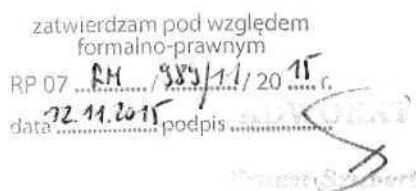 zatwierdzam pod względem
formalno-prawnym
RP 07 RM / 989/11 / 20 15 r.
data 12.11.2015 podpis